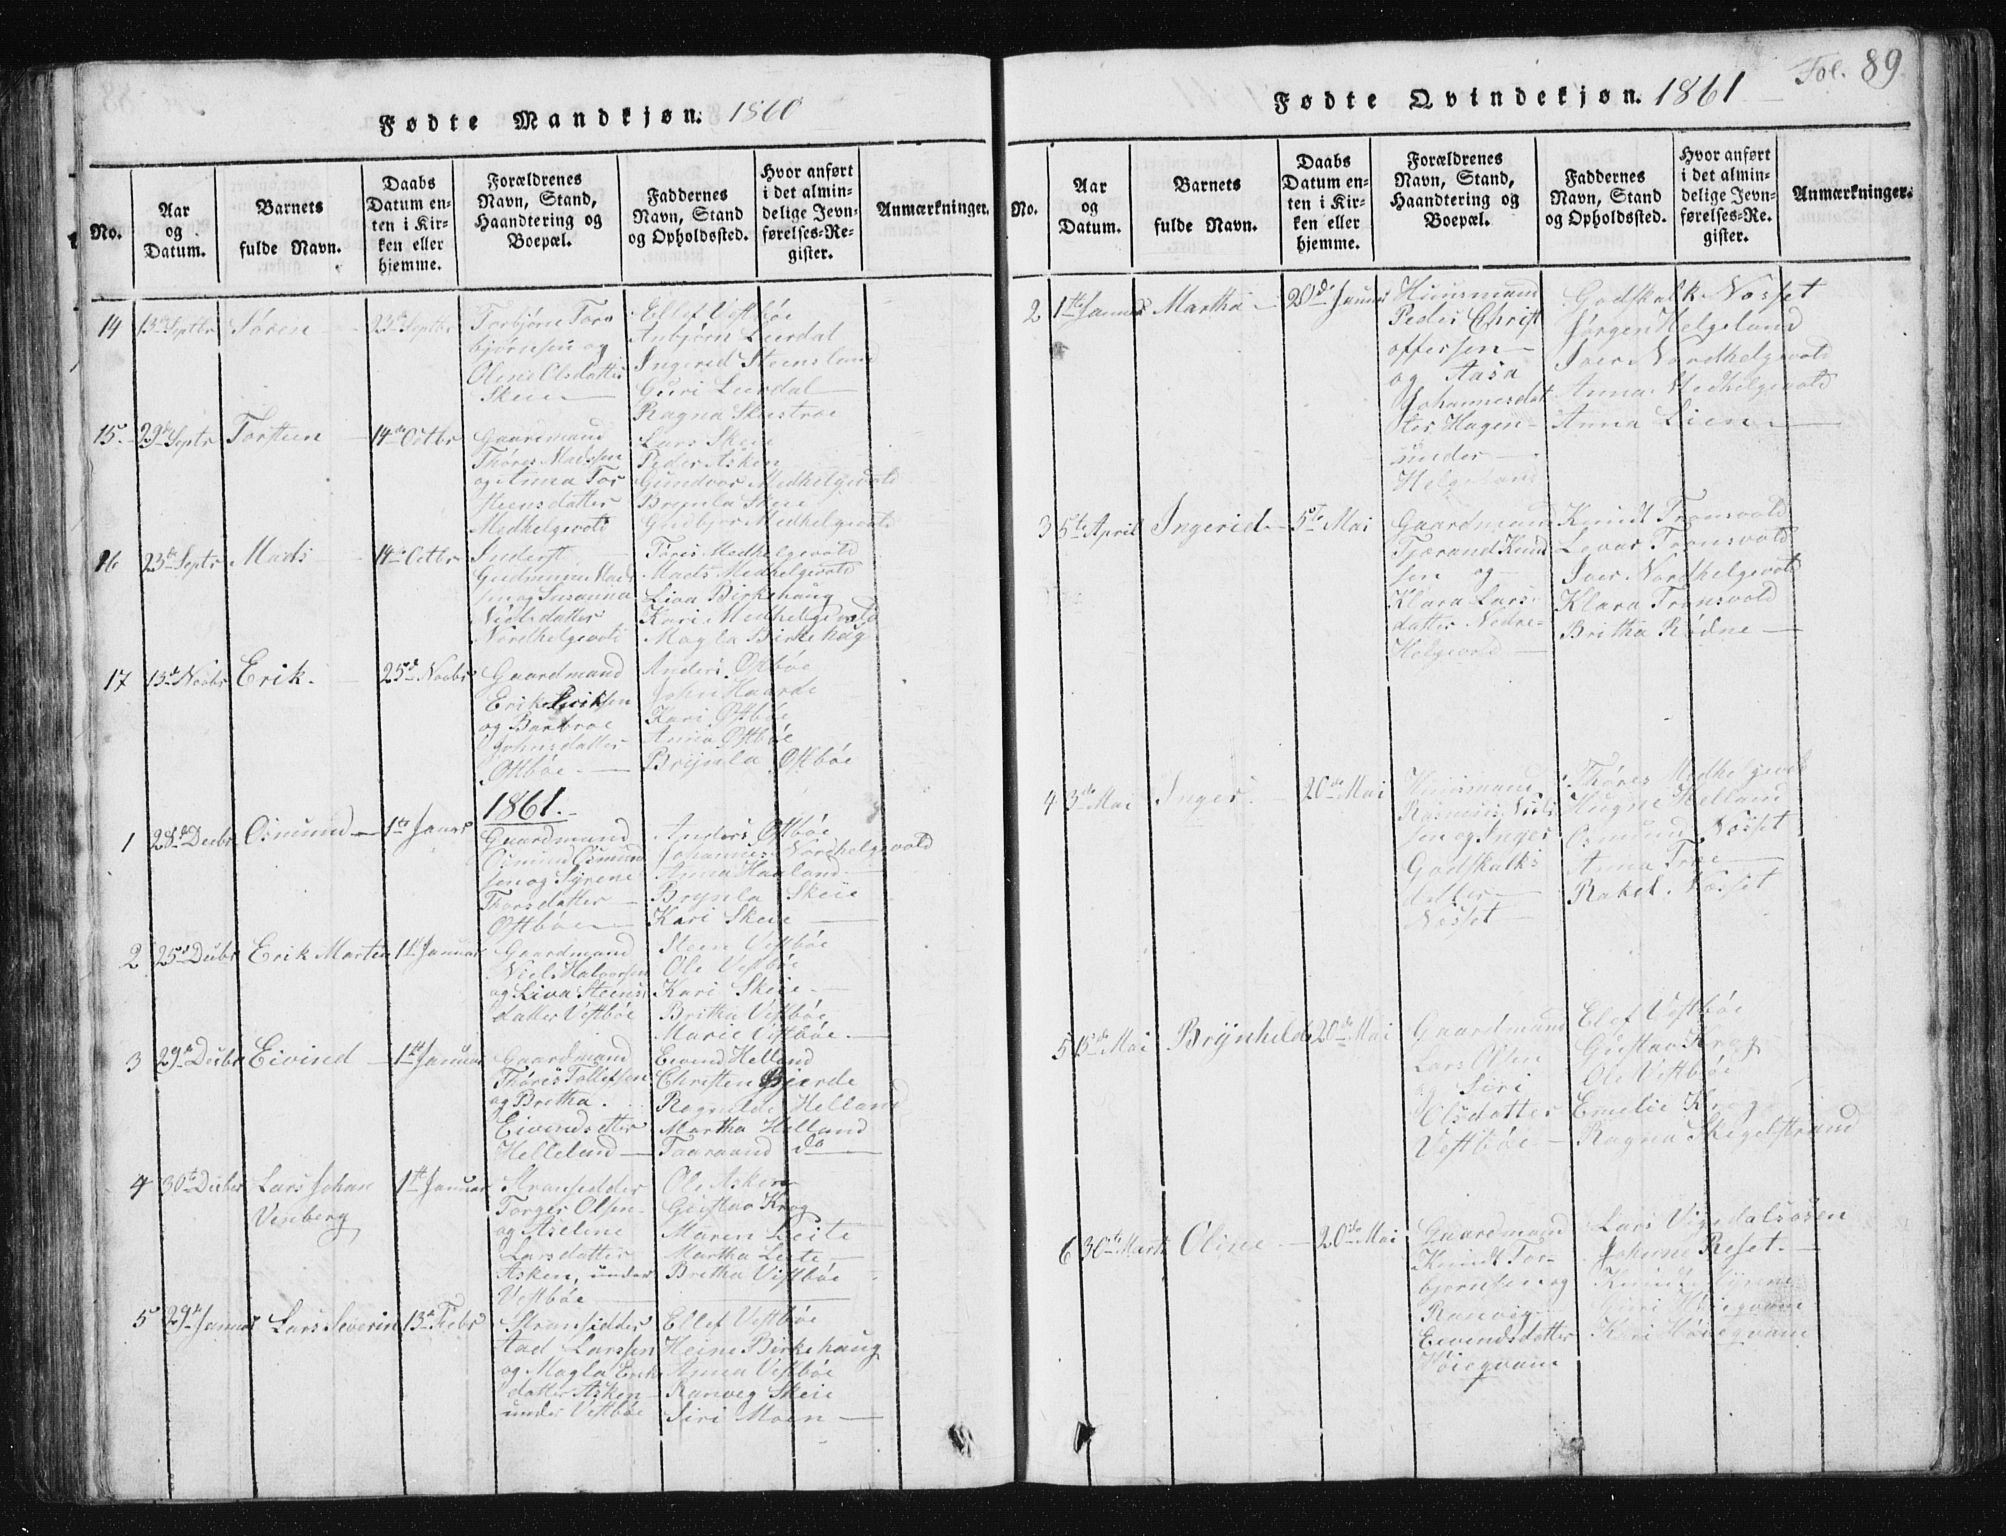 Fødte Mandkjøn. 1860
No.
Aar og Datum.
Barnets fulde Navn.
Daabs Datum enten i Kirken eller hjemme.
Forældrenes Navn, Stand, Haandtering og Boepæl.
Faddernes Navn, Stand og Opholdssted.
Hvor anført i det almindelige Jevnførelses-Register.
Anmærkninger.
14 13de Septbr Søren 23de Septbr
Torbjørn Tor
bjørnsen og
Olene Olsdatter
Skeie
Ellef Vestbøe
Anbjørn Leerdal
Ingerid Steensland
Guri Leerdal
Ragna Skastrøe
15 29de Septr Torsteen 14de Octbr
Gaardmand
Thøres Madssen
og Anna Tor
steensdatter
Medhelgevold
Lars Skeie
Peder Asken
Gundvor Medhelgevold
Brynla Skeie
Gudbjør Medhelgevold
16 23de Septr Mads 14de Octbr
Inderst
Gudmund Mads
sen og Susanna
Nielsdatter
Nordhelgevold
Tøres Medhelgevold
Mads Medhelgevold
Liva Birkehaug
Kari Medhelgevold
Magla Birkehaug
17 13de Novbr Erik. 25de Novbr
Gaardmand
Erik Eriksen
og Barbroe
Johnsdatter
Østbøe.
Anders Østbøe
John Haarde
Kari Østbøe
Anna Østbøe
Brynla Østbøe
1861.
1 28de Decbr Osmund 1ste Januar
Gaardmand
Osmund Osmund
sen og Syrene
Thorsdatter
Østbøe
Anders Østbøe
Johannes Nordhelgevold
Anna Haaland
Brynla Skeie
Kari Skeie
2 25de Decbr Erik Martin 1ste Januar
Gaardmand
Niels Halvorsen
og Liva Steens
datter Vestbøe
Steen Vestbøe
Ole Vestbøe
Kari Skeie
Britha Vestbøe
Marie Vestbøe.
3 29de Decbr Eivind 1ste Januar
Gaardmand
Thøres Tollefsen
og Bretha
Eivindsdtter
Helleland
Eivend Helland
Christen Gjerde
Ragnilde Helland
Martha Helland
Taaraand do
4 30te Decbr Lars Johan
Vinberg
1ste Januar
Stransidder
Torger Olsen
og Aselene
Larsdatter
Asken, under
Vestbøe
Ole Asken
Gustav Krog
Maren Leite
Martha Leite
Bretha Vestbøe
5 29de Januar Lars Severin 13de Febr
Stransidder
Aad Larssen
og Magla Eriks
datter Asken
under Vestbøe
Ellef Vestbøe
Heine Birkehaug
Anna Vestbøe
Ranveg Skeie
Siri Moen
Fol. 89.
Fødte Qvindekjøn. 1861
No.
Aar og Datum.
Barnets fulde Navn.
Daabs Datum enten i Kirken eller hjemme.
Forældrenes Navn, Stand, Haandtering og Boepæl.
Faddernes Navn, Stand og Opholdssted.
Hvor anført i det almindelige Jevnførelses-Register.
Anmærkninger.
2 1ste Januar Martha 20de Januar
Huusmand
Peder Christ
offersen
og Aasa
Johannesdat
ter Hagen
under
Helgeland
Godskalk Nøsset
Jørgen Helgeland
Iver Nordhelgevold
Anna Medhelgevold
Anna Lien
3 5te April Ingerid 5te Mai
Gaardmand
Tjærand Knud
sen og
Klara Lars
datter Nedre
Helgevold
Knudt Tronsvold
Levar Tronsvold
Iver Nordhelgevold
Klara Tronsvold
Britha Rødne
4 3de Mai Inger. 20de Mai
Huusmand
Rasmus Niels
sen og Inger
Godskalks
datter
Nøsset
Thøres Medhelgevold
Hugne Helland
Osmund Nøsset
Anna Troe
Rakel Nøsset
5 15de Mai Brynhilde 20de Mai
Gaardmand
Lars Olsen
og Siri
Olsdatter
Vestbøe
Elef Vestbøe
Gustav Krog
Ole Vestbøe
Emelie Krog
Ragna Skigelstrand
6 30te Marts Oline 20de Mai
Gaardmand
Knudt Tor-
bjørnsen og
Ranveig
Eivendsdatter
Høiegvam
Lars Vigedalsøsen
Johanne Reset.
Guri Høiegvam
Kari Høiegvam